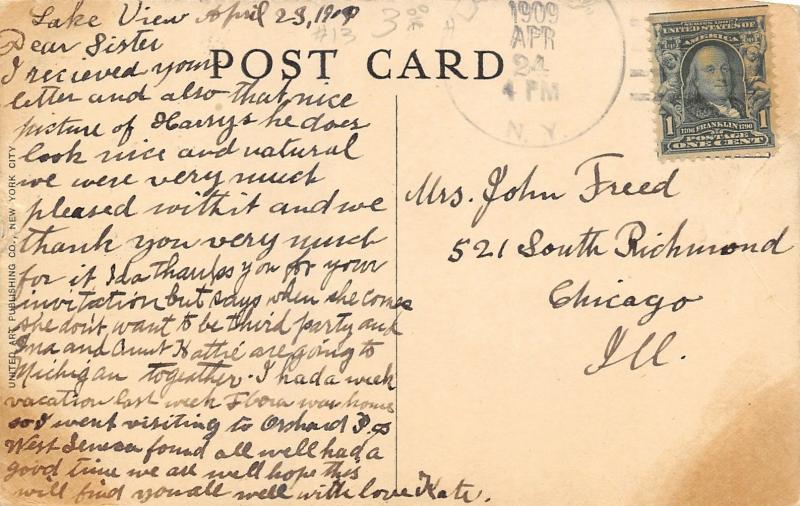 Lake View April 23, 1909
Dear Sister
I recieved your
letter and also that nice
picture of Harrys he does
look nice and natural
we were very much
pleased with it and we
thank you very much
for it Ida thanks you for your
invitation but says when she comes
she don't want to be third party and
Ima and Aunt Hattie are going to
Michigan togeather. I had a week
vacation last week Flora was home
so I went visiting to Orchard P. &
West Seneca found all well had a
good time we are well hope this
will find you all well with love Kate.
POST CARD
UNITED ART PUBLISHING CO., NEW YORK CITY
#13
1909
APR
24
4 PM
N. Y.
SERIES 1902
UNITED STATES OF
AMERICA
1706 FRANKLIN 1790
1 POSTAGE 1
ONE CENT
Mrs. John Freed
521 South Richmond
Chicago
Ill.